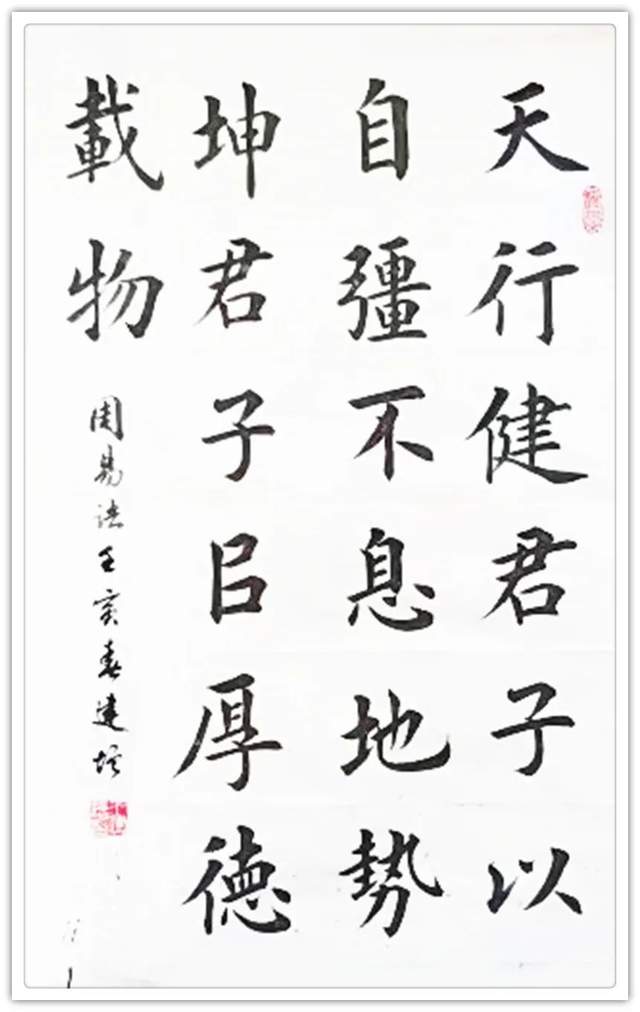 天行健君子以
自彊不息地勢
坤君子㠯厚德
載物
周易 壬寅春建